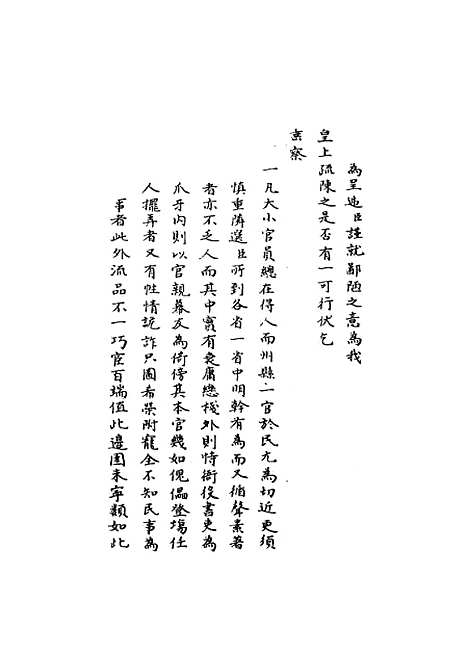 為呈進臣謹就鄙陋之意為我
皇上疏陳之是否有一可行伏乞
京察
一凡大小官員總在得人而州縣二官於民尤為切近更須
慎重揀選臣所到各省一省中明幹有為而又循聲素著
者亦不乏人而其中實有衰庸戀棧外則恃衙役書吏為
爪牙內則以官親幕友為倚傍其本官幾如傀儡登場任
人擺弄者又有性情詭詐只圖希榮附寵全不知民事為
事者此外流品不一巧宦百端值此邊圉未寧類如此